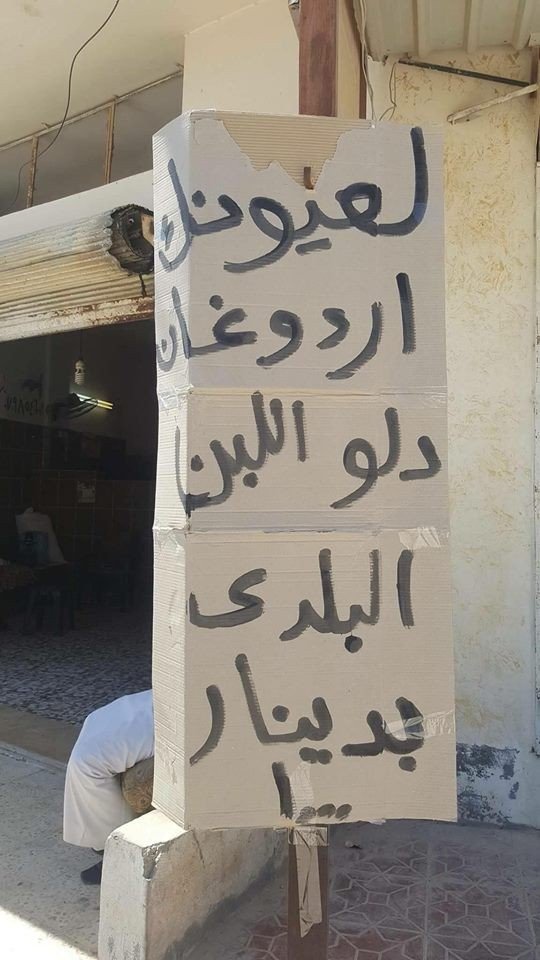 لعيونك
اردوغان
دلو اللبن
البلدى
بدينار
١٠٠٠